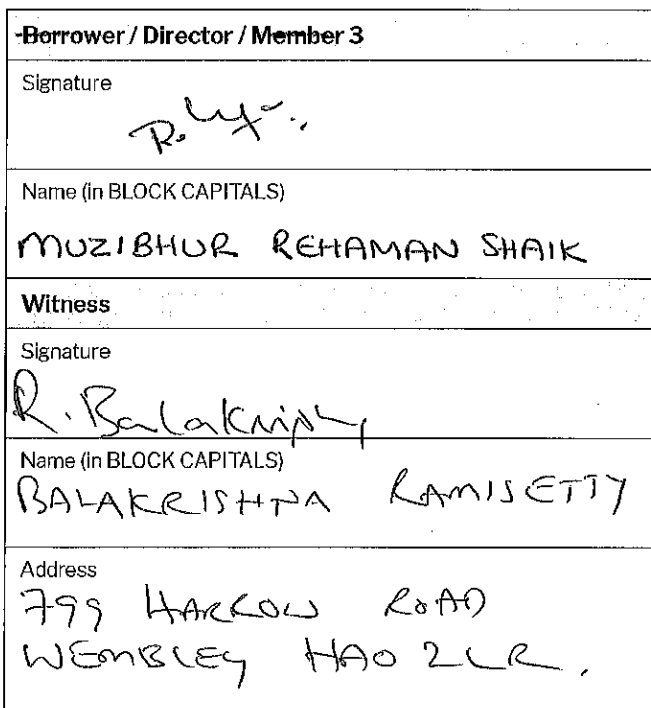 Borrower / Director / Member 3
Signature
Name (in BLOCK CAPITALS)
MUZIBHUR REHAMAN SHAIK
Witness
Signature
R. Balakrishna
Name (in BLOCK CAPITALS)
BALAKRISHNA RAMISETTY
Address
799 HARROW ROAD
WEMBLEY HA0 2LR.